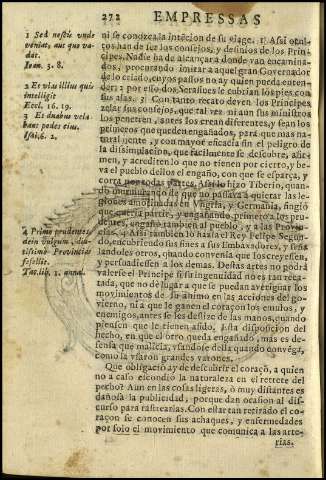 272 EMPRESSAS
1 Sed nescis unde
veniat, aut quo va-
dat.
Ioan. 3. 8.
2 Et vias illius quis
intelligit
Eccl. 16. 19.
3 Et duabus vela-
bant pedes eius.
Isai. 6. 2.
4 Primo prudentes,
dein vulgum, diu-
tissimè Provincias
fefellit.
Tac. lib. 1. annal.
ni se conozca la intēcion de su viage. 1 Assi ocul-
tos han de ser los consejos, y desinios de los Prin-
cipes. Nadie ha de alcançar a donde van encamina-
dos, procurando imitar a aquel gran Governador
de lo criado, cuyos passos no ay quien pueda enten-
der: 2 por esso dos Serafines le cubrian los pies con
sus alas. 3 Con tanto recato deven los Principes
zelar sus consejos, que tal vez ni aun sus ministros
los penetren, antes los crean diferentes, y sean los
primeros que queden engañados, para que mas na-
tural mente, y con mayor eficacia sin el peligro de
la dissimulacion, que facilmente se descubre, afir-
men, y acrediten lo que no tienen por cierto, y be-
va el pueblo dellos el engaño, con que se esparça, y
corra por todas partes. Assi lo hizo Tiberio, quan-
do murmurando de que no passava a quietar las le-
giones amotinadas en Vngria, y Germania, fingiò
que queria partir, y engañando primero a los pru-
dentes, engañò tambien al pueblo, y a las Provin-
cias. 4 Assi tambien lo hazia el Rey Felipe Segun-
do, encubriendo sus fines a sus Embaxadores, y señ-
landoles otros, quando convenia que los creyessen,
y persuadiessen a los demas. Destas artes no podrà
valerse el Principe si su ingenuidad no es tan reca-
tada, que no dè lugar a que se puedan averiguar los
movimientos de su animo en las acciones del go-
vierno, ni a que le ganen el coraçon los emulos, y
enemigos, antes se les deslize de las manos, quando
piensen que le tienen asido. Esta disposicion del
hecho, en que el otro queda engañado, mas es de-
fensa que malicia, vsandose della quando convēga,
como la vsaron grandes varones.
Que obligaciō ay de descubrir el coraçō, a quien
no a caso escondiò la naturaleza en el retrete del
pecho? Aun en las cosas ligeras, ò muy distantes es
dañosa la publicidad, porque dan ocasion al dis-
curso para rastrearlas. Con estar tan retirado el co-
raçon se conocen sus achaques, y enfermedades
por solo el movimiento que comunica a las arte-
rias.